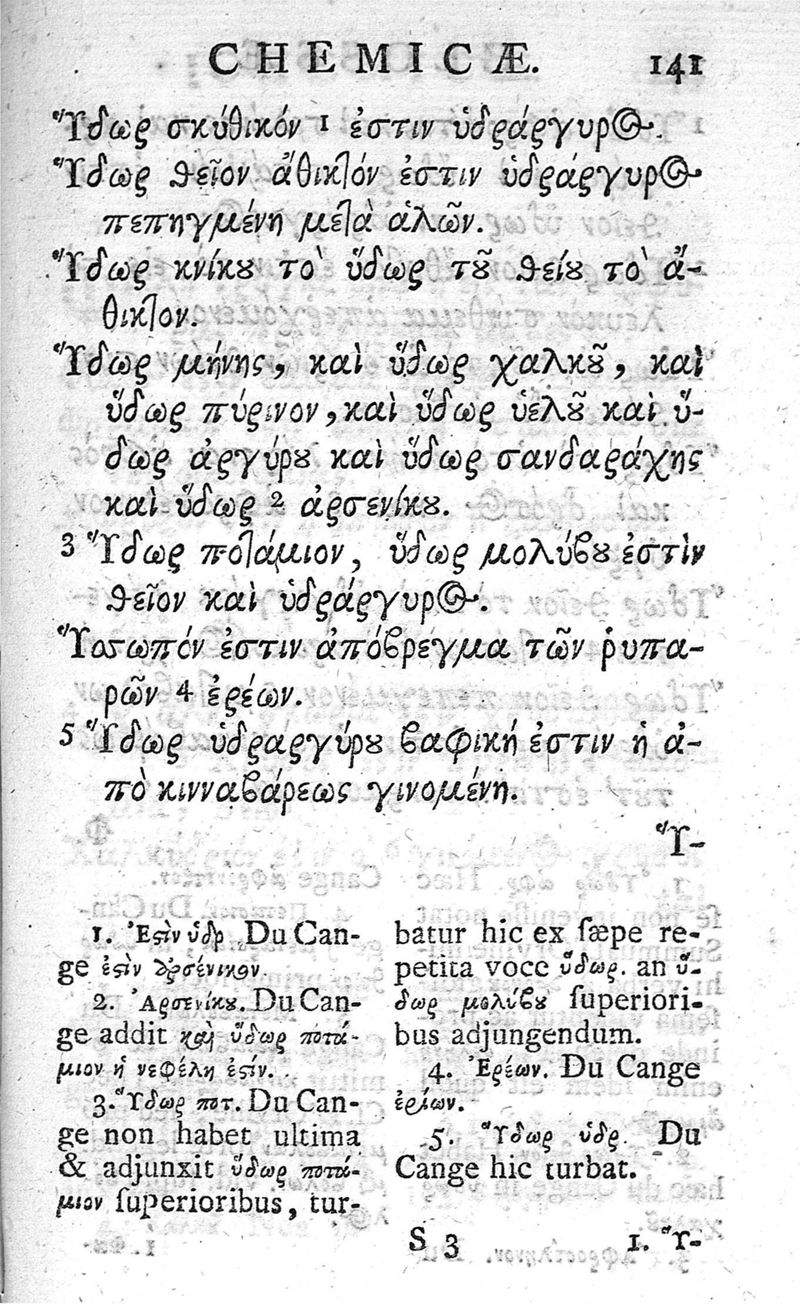 CHEMICÆ. 141
Ὕδωρ σκύθικόν 1 ἐστιν ὑδράργυρος.
Ὕδωρ θεῖον ἄθικτόν ἐστιν ὑδράργυρος
πεπηγμένη μετὰ ἁλῶν.
Ὕδωρ κνίκου το` ὕδωρ τοῦ θείου το` ἄ-
θικτον.
Ὕδωρ μήνης, καὶ ὕδωρ χαλκοῦ, καὶ
ὕδωρ πύρινον, καὶ ὕδωρ ὑελοῦ καὶ ὕ-
δωρ ἀργύρου καὶ ὕδωρ σανδαράχης
καὶ ὕδωρ 2 ἀρσενίκου.
3 Ὕδωρ ποτάμιον, ὕδωρ μολύβου ἐστὶν
θεῖον καὶ ὑδράργυρος.
Ὕσσωπόν ἐστιν ἀπόβρεγμα τῶν ῥυπα-
ρῶν 4 ἐρέων.
5 Ὕδωρ ὑδραργύρου βαφική ἐστιν ἡ ἀ-
πὸ κινναβάρεως γινομένη.
Ὕ-
1. Ἐστιν ὑδρ. Du Can-
ge ἐστὶν ἀρσένικον.
2. Ἀρσενίκου. Du Can-
ge addit καὶ ὕδωρ ποτά-
μιον ἡ νεφέλη ἐστίν.
3. Ὕδωρ ποτ. Du Can-
ge non habet ultima
& adjunxit ὕδωρ ποτά-
μιον ſuperioribus, tur-
batur hic ex ſæpe re-
petita voce ὕδωρ. an ὕ-
δωρ μολύβου ſuperiori-
bus adjungendum.
4. Ἐρέων. Du Cange
ἐρίων.
5. Ὕδωρ ὑδρ. Du
Cange hic turbat.
S 3 1. Ὕ-